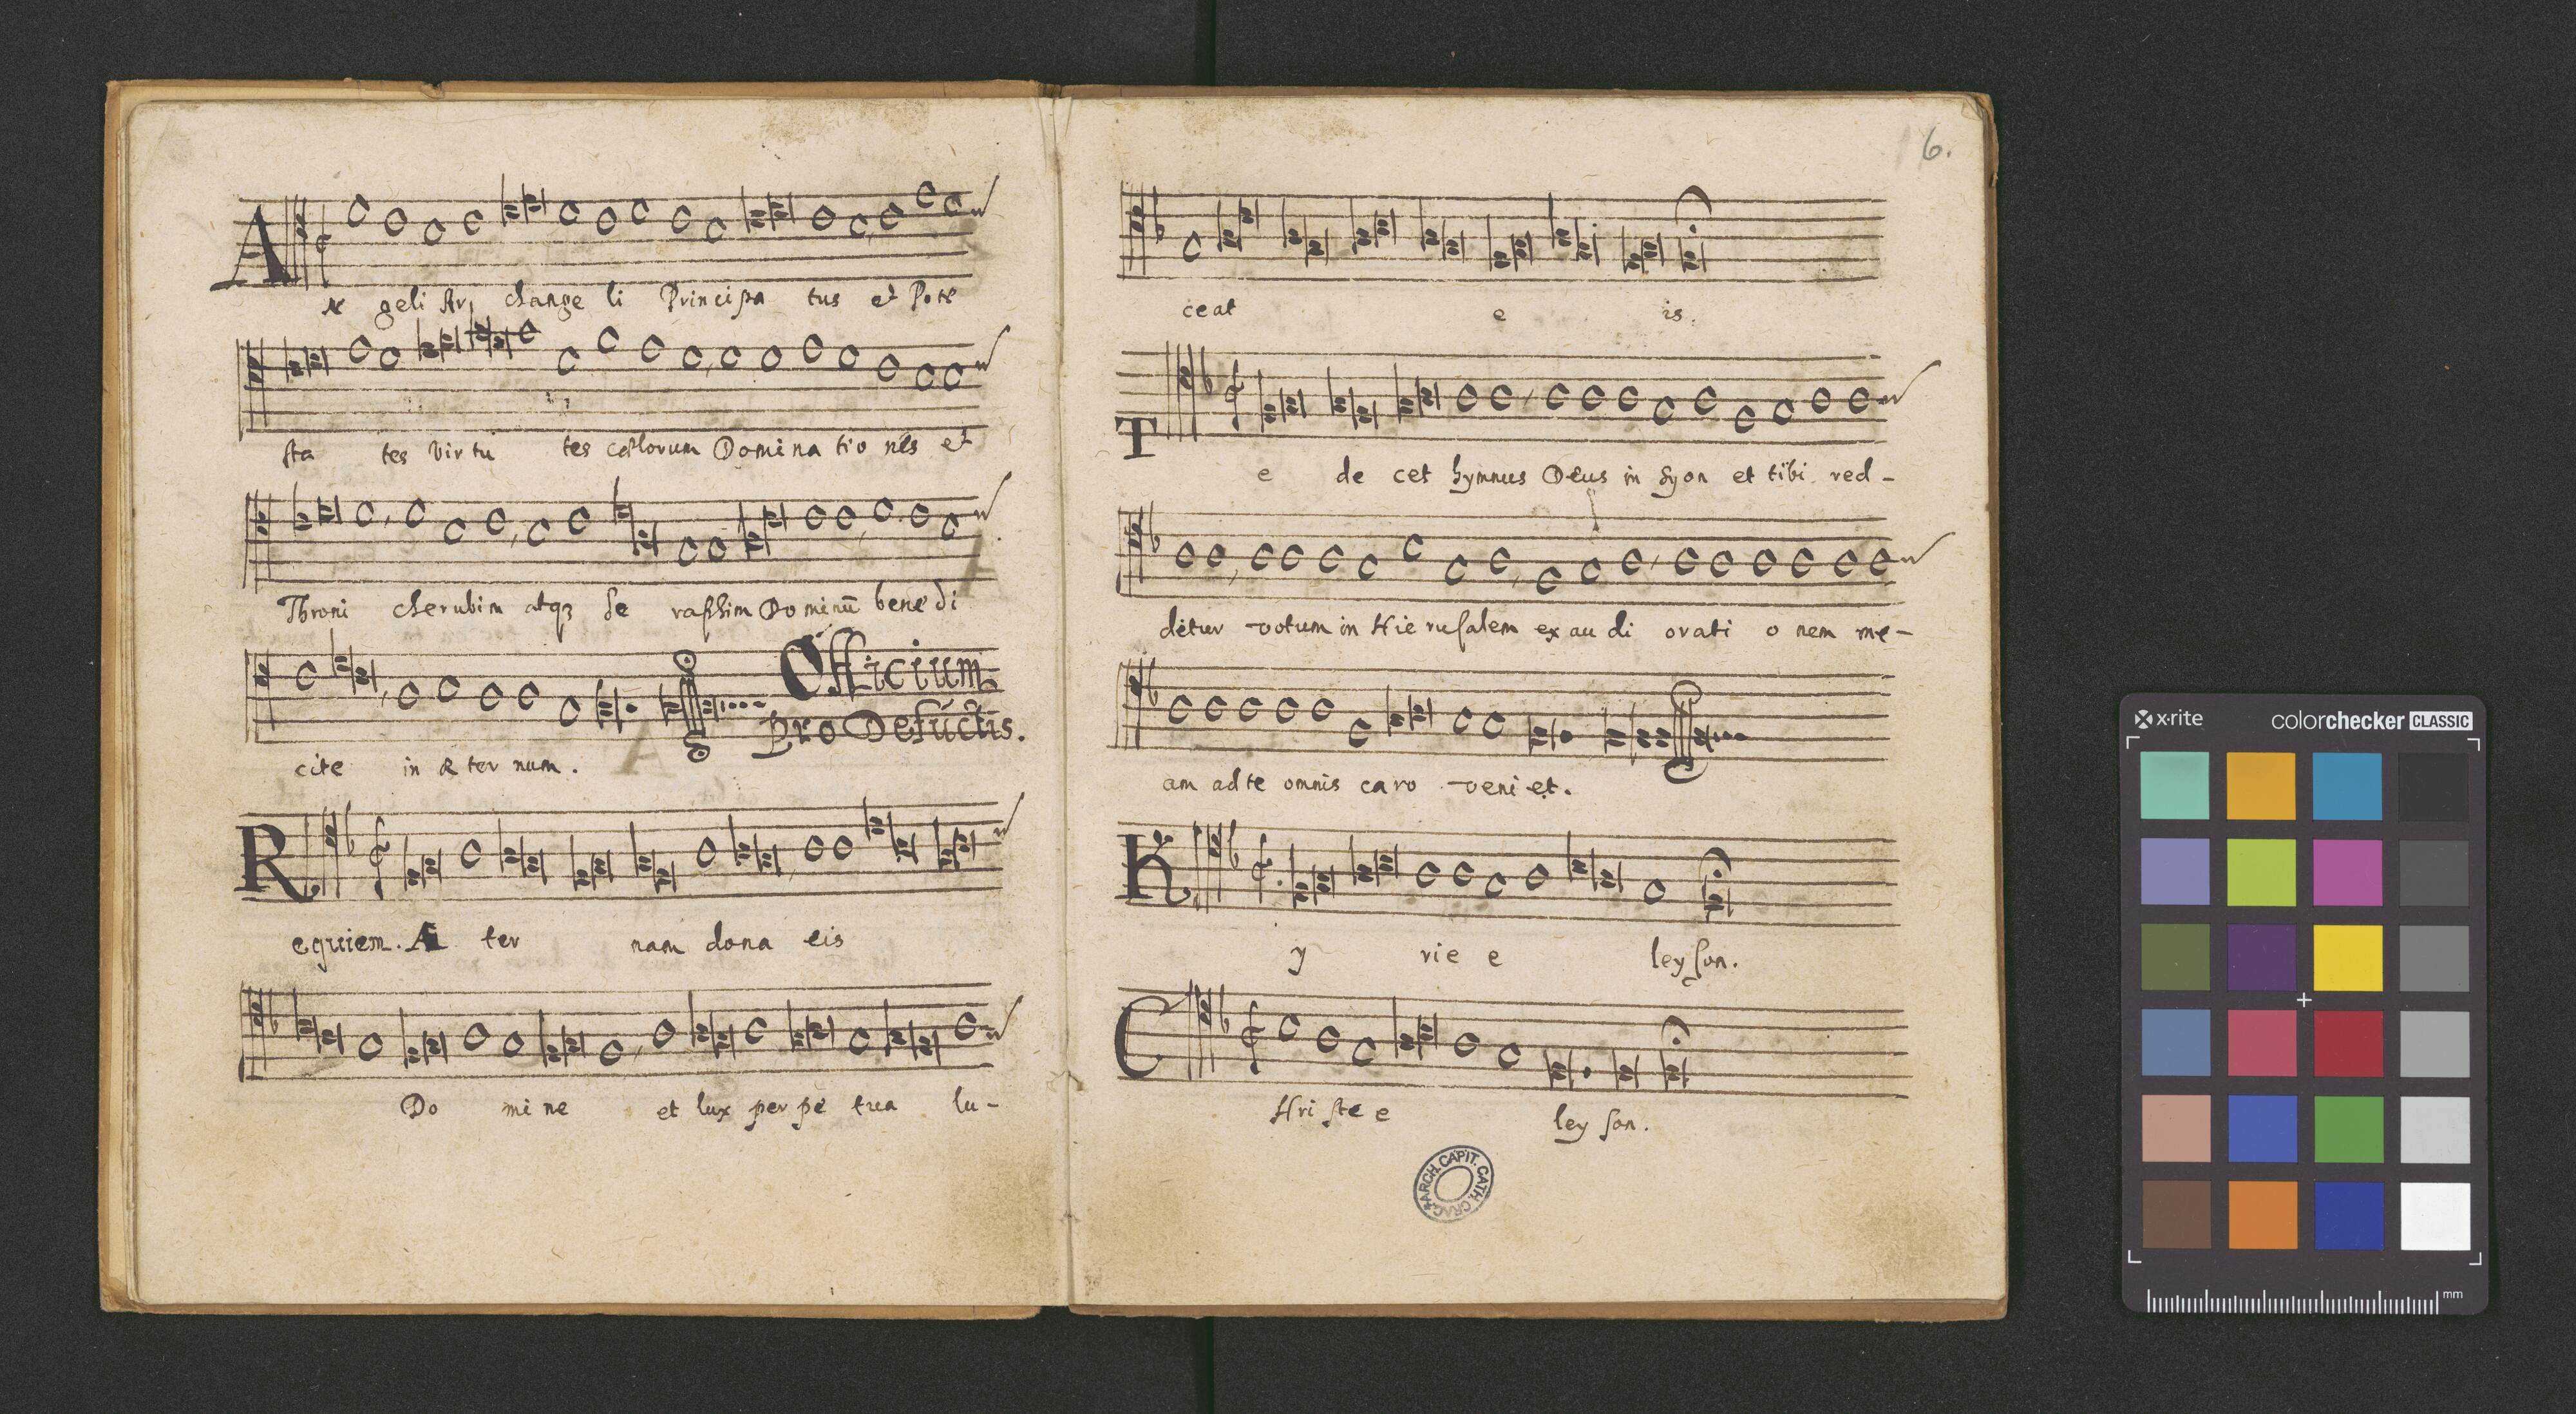 An geli Ar changeli Principa tus et Pote
sta tes Virtu tes cœlorum Domina tio nes et
Throni cherubim atqꝫ Se raphim Do minū bene di
cite in æ ter num.
Officium
Pro Defūctis.
Requiem. Æ ter nam dona eis
Do mi ne et lux per pe tua lu-
6.
ceat e is.
Te de cet hymnus Deus in Syon et tibi red-
detur votum in Hie rusalem ex au di orati o nem me-
am ad te omnis caro veni et.
Ky rie e leyson.
CHri ste e ley son.
ARCH. CAPIT. CATH. CRAC.
x·rite
colorchecker CLASSIC
mm